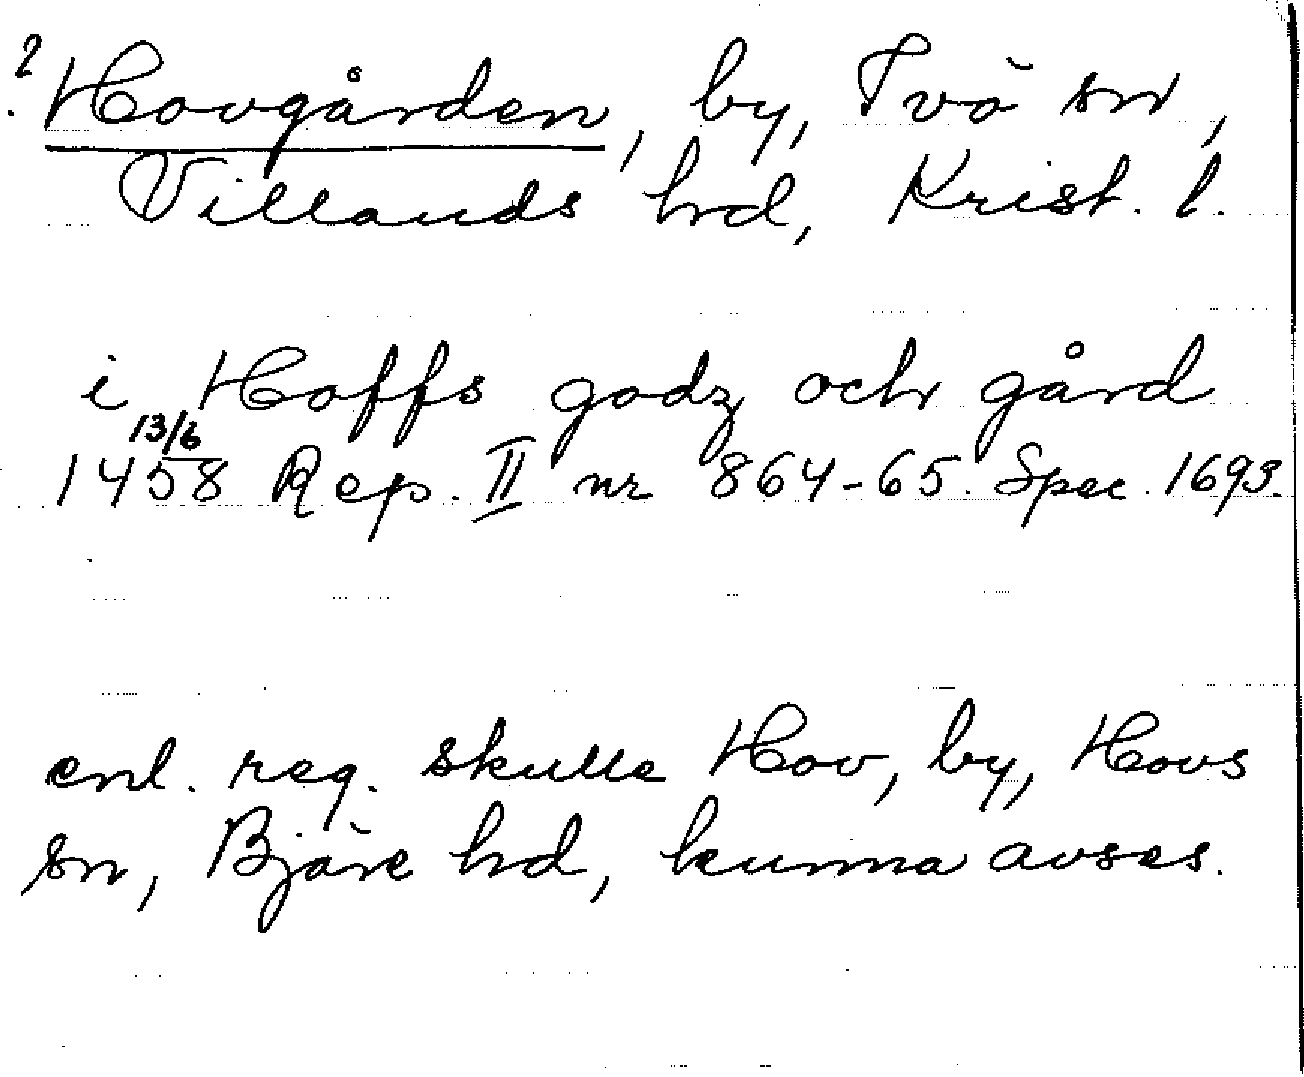 ? Hovgården, by, Ivö sn,
Villands hd, Krist. l.
i Hoffs godz och gård
13/6
1458 Rep. II nr 864-65. Spec. 1693.
enl. reg. skulle Hov, by, Hovs
sn, Bjäre hd, kunna avses.